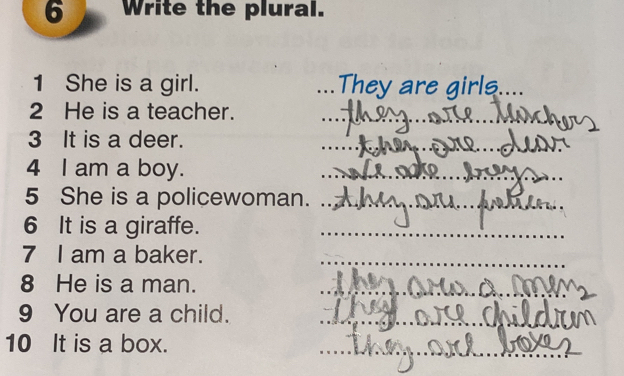 6 Write the plural.
1 She is a girl. ...They are girls....
2 He is a teacher. they are teachers
3 It is a deer. they are dear
4 I am a boy. we are boys
5 She is a policewoman. they are
6 It is a giraffe.
7 I am a baker.
8 He is a man. they are a men
9 You are a child. they are children
10 It is a box. they are boxes